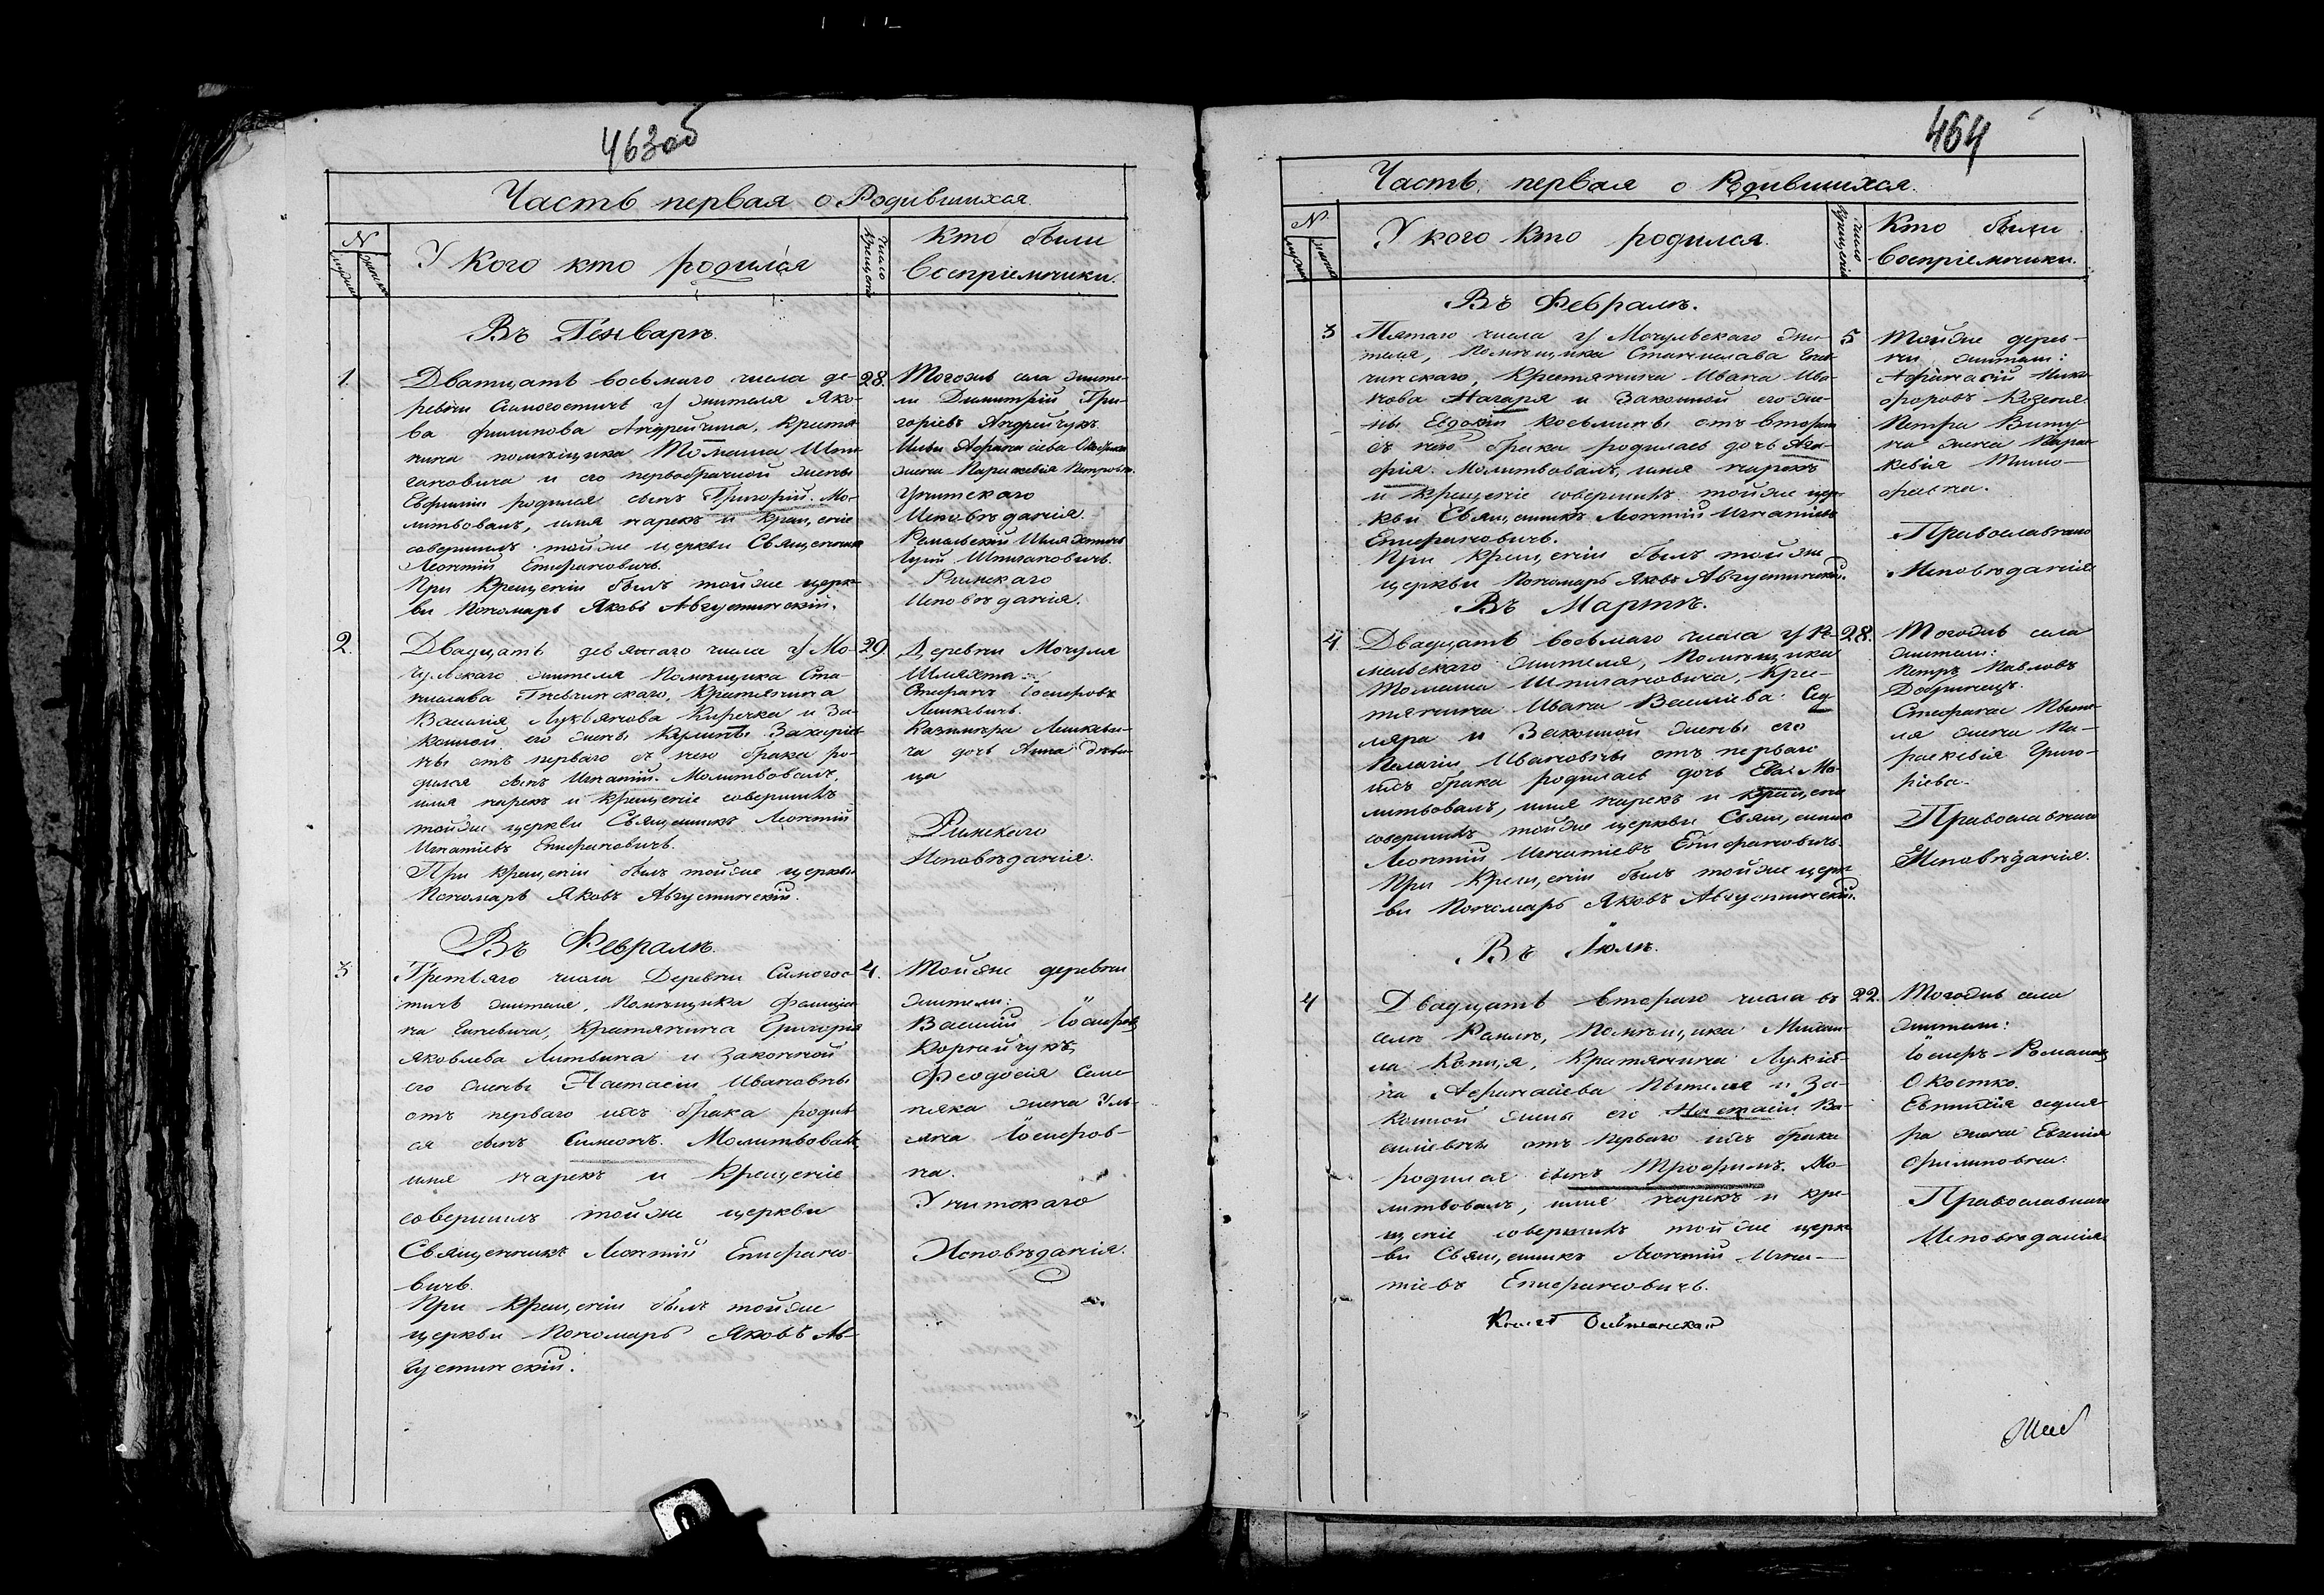 463об
Часть первая о Родившихся.
N
мужска
женска
У Кого кто родился
число крещенія
Кто были
Воспріемники.
Въ Генваръ.
1.
Дватцать восьмаго числа де-
ревни Симогостичь г/ жителя Яко-
ва Филипова Андрейчина, Крестя
нина помѣщика Томаша Шпи
гановича и его первобрачной жены
Евфиміи родился сынъ Григорій. Мо-
литвовалъ, имя нарекъ и крещеніе
совершилъ тойже церкви Священникъ
Леонтий Епифановичь.
При Крещеніи былъ тойже церк-
ви Пономарь Яковъ Августинскій.
28.
Тогожъ села жите-
ли Димитрій Гри-
горіевъ Андрейчукъ
жена Параскевія Петровна.
Унитскаго
Исповѣданія.
Римскаго
Исповѣданія.
2.
Двадцать девятаго числа г/ Мо-
чульскаго жителя Помѣщика Ста-
нислава Гневчинскаго, Крестянина
Василія Лукьянова Киречка и За-
конной его жены Кулины Захаріев
ны отъ перваго съ нею брака ро-
дился сынъ Игнатій. Молитвовалъ,
имя нарекъ и крещеніе совершилъ
тойже церкви Священникъ Леонтий
Игнатіевъ Епифановичъ.
При крещеніи былъ тойже церкви
Пономарь Яковъ Августинскій.
29.
Деревни Мочуля
Шляхта:
Стефанъ Іосифовъ
Лешкевичъ.
Казимира Лешкеви-
ча дочь Анна Дѣви-
ца
Римскаго
Исповѣданія.
Въ Февралъ.
3
Третьяго числа Деревни Симогос-
тичь жителя, Помѣщика
Григорія
Яковлева Литвина и Законной
его жены Настасіи Ивановны
отъ перваго ихъ брака родил
ся сынъ Симеонъ. Молитвовалъ,
имя нарекъ и Крещеніе
совершилъ тойже церкви
Священникъ Леонтий Епифано-
вичъ.
При Крещеніи былъ тойже
церкви Пономарь Яковъ Ав-
густинскій.
4.
Тойже деревни
жители:
Василій Іосифовъ
Корнійчукъ,
Феодосія Семе-
няка жена Уль-
яна Іосифов-
на.
Унитскаго
Исповѣданія.
464
Часть первая о Родившихся.
N
мужска
женска
У кого кто родился.
число крещенія
Кто были
Воспріемники.
Въ Февралъ.
3
Пятаго числа г/ Мочульскаго жи-
теля, Помѣщика Станислава Гнев-
чинскаго, Крестянина Ивана Ива-
нова Нагаря и Законной его же-
ны Евдокіи Косьмины отъ втораго
съ нею брака родилась дочь Ага-
фія. Молитвовалъ, имя нарекъ
и Крещеніе совершилъ тойже цер-
кви Священникъ Леонтий Игнатіевъ
Епифановичъ.
При крещеніи былъ тойже
церкви Пономарь Яковъ Августинскій.
5
Тойже дерев-
ни жители:
Афанасій Ники-
форовъ
Петра
на жена Пара-
скевія Тимо-
феевна.
Православнаго
Исповѣданія
Въ Мартъ.
4
Двадцать восьмаго числа г/ Ре-
мельскаго жителя, Помѣщика
Томаша Шпигановича, Кре-
стянина Ивана Василіева Сед
ляра и Законной жены его
Пелагіи Ивановны отъ перваго
ихъ брака родилась дочь Ева. Мо-
литвовалъ, имя нарекъ и крещеніе
совершилъ тойже церкви Священникъ
Леонтий Игнатіевъ Епифановичъ.
При Крещеніи былъ тойже церк
ви Пономарь Яковъ Августинскій.
28.
Тогожъ села
жители:
Петръ Павловъ
Добринецъ.
Стефана Пыте-
ля жена Па-
раскевія Григо-
ріева.
Православнаго
Исповѣданія.
Въ Іюлъ.
4
Двадцать втораго числа въ
селѣ Ремлѣ, Помѣщика Михаи-
ла Крестянина Лукія-
на Афанасіева Пытеля и За-
конной жены его Настасіи Ва-
силіевны отъ перваго ихъ брака
родился сынъ Трофимъ. Мо-
литвовалъ, имя нарекъ и кре-
щеніе совершилъ тойже церк-
ви Священникъ Леонтий Игна-
тіевъ Епифановичъ.
22.
Тогожъ села
жители:
Іосифъ Романовъ
Окостко.
седля-
ра жена Евгенія
Филиповна.
Православнаго
Исповѣданія.